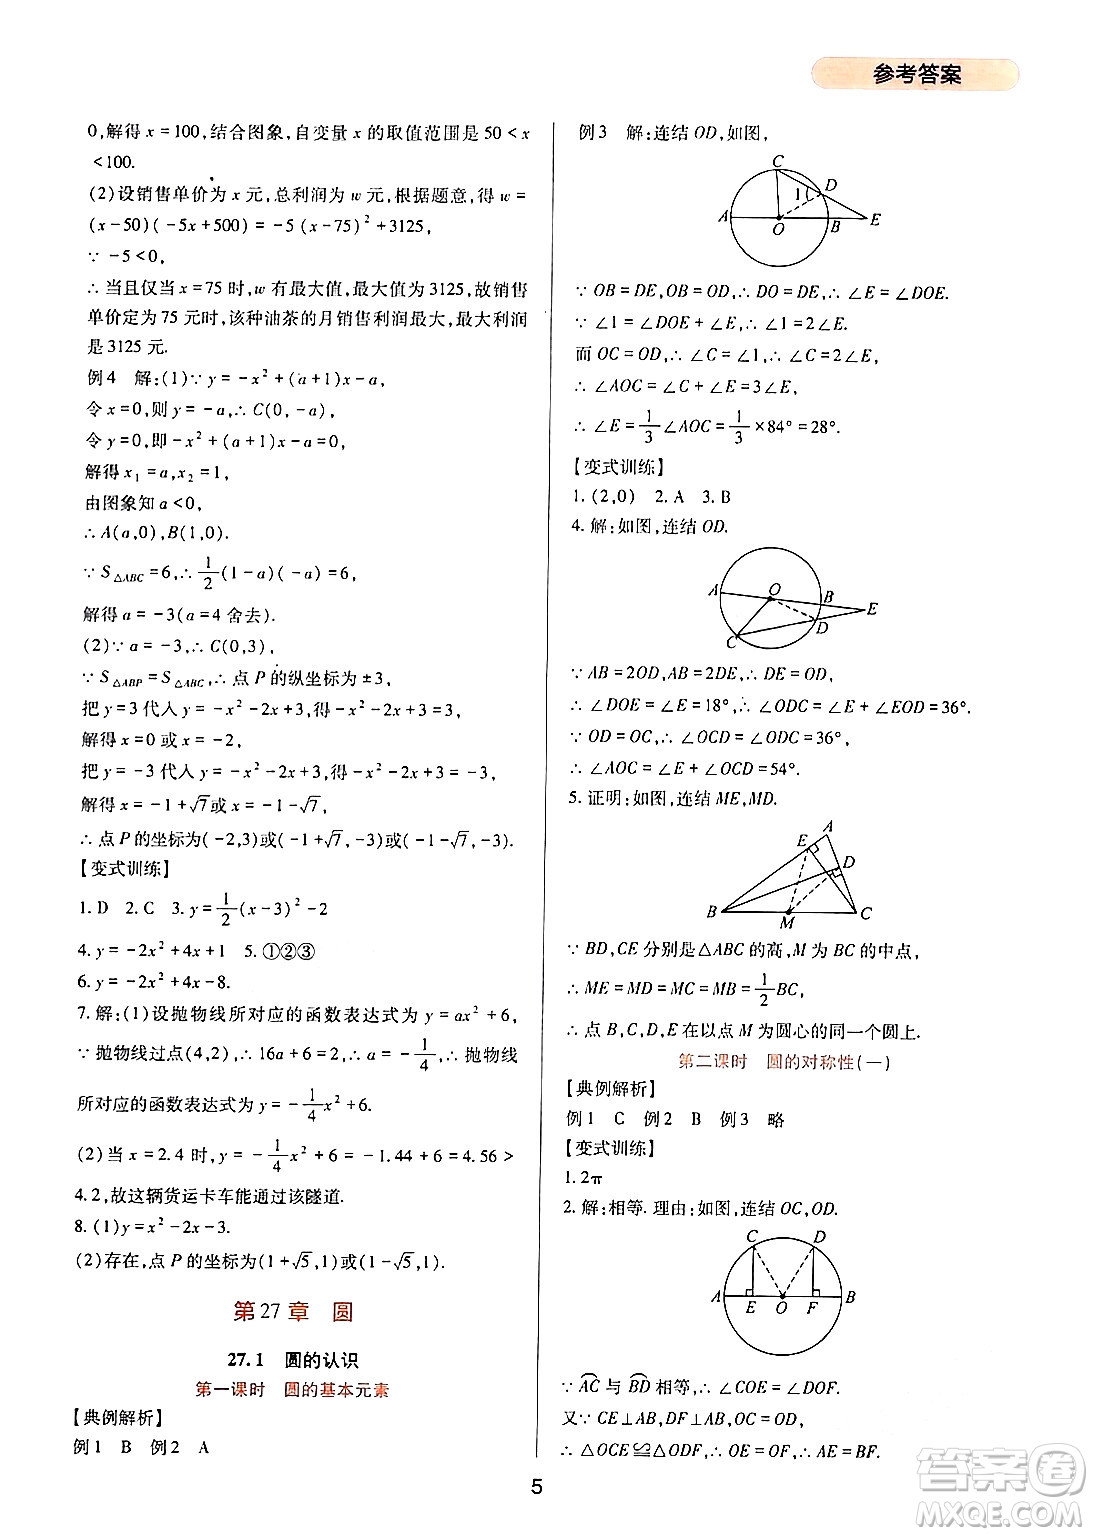 参考答案
0,解得 x=100,结合图象,自变量 x 的取值范围是 50<x
<100.
(2)设销售单价为 x 元,总利润为 w 元,根据题意,得 w=
(x-50)(-5x+500)=-5(x-75)²+3125,
∵ -5<0,
∴ 当且仅当 x=75 时,w 有最大值,最大值为 3125,故销售
单价定为 75 元时,该种油茶的月销售利润最大,最大利润
是 3125 元.
例4 解:(1)∵ y=-x²+(a+1)x-a,
令 x=0,则 y=-a,∴ C(0,-a).
令 y=0,即 -x²+(a+1)x-a=0,
解得 x₁=a,x₂=1,
由图象知 a<0,
∴ A(a,0),B(1,0).
∵ S△ABC=6,∴ 1/2(1-a)(-a)=6,
解得 a=-3(a=4 舍去).
(2)∵ a=-3,∴ C(0,3),
∵ S△ABP=S△ABC,∴ 点 P 的纵坐标为 ±3,
把 y=3 代入 y=-x²-2x+3,得 -x²-2x+3=3,
解得 x=0 或 x=-2,
把 y=-3 代入 y=-x²-2x+3,得 -x²-2x+3=-3,
解得 x=-1+√7或 x=-1-√7,
∴ 点 P 的坐标为(-2,3)或(-1+√7,-3)或(-1-√7,-3).
【变式训练】
1. D 2. C 3. y=1/2(x-3)²-2
4. y=-2x²+4x+1 5. ①②③
6. y=-2x²+4x-8.
7. 解:(1)设抛物线所对应的函数表达式为 y=ax²+6,
∵ 抛物线过点(4,2),∴ 16a+6=2,∴ a=-1/4,∴ 抛物线
所对应的函数表达式为 y=-1/4x²+6.
(2)当 x=2.4 时,y=-1/4x²+6=-1.44+6=4.56>
4.2,故这辆货运卡车能通过该隧道.
8. (1)y=x²-2x-3.
(2)存在,点 P 的坐标为(1+√5,1)或(1-√5,1).
第 27 章 圆
27.1 圆的认识
第一课时 圆的基本元素
【典例解析】
例1 B 例2 A
例3 解:连结 OD,如图,
C
D
1
A
O
B
E
∵ OB=DE,OB=OD,∴ DO=DE,∴ ∠E=∠DOE.
∵ ∠1=∠DOE+∠E,∴ ∠1=2∠E.
而 OC=OD,∴ ∠C=∠1,∴ ∠C=2∠E,
∴ ∠AOC=∠C+∠E=3∠E,
∴ ∠E=1/3∠AOC=1/3×84°=28°.
【变式训练】
1. (2,0) 2. A 3. B
4. 解:如图,连结 OD.
A
O
B
E
D
C
∵ AB=2OD,AB=2DE,∴ DE=OD,
∴ ∠DOE=∠E=18°,∴ ∠ODC=∠E+∠EOD=36°.
∵ OD=OC,∴ ∠OCD=∠ODC=36°,
∴ ∠AOC=∠E+∠OCD=54°.
5. 证明:如图,连结 ME,MD.
A
E
D
B
M
C
∵ BD,CE 分别是△ABC 的高,M 为 BC 的中点,
∴ ME=MD=MC=MB=1/2BC,
∴ 点 B,C,D,E 在以点 M 为圆心的同一个圆上.
第二课时 圆的对称性(一)
【典例解析】
例1 C 例2 B 例3 略
【变式训练】
1. 2π
2. 解:相等. 理由:如图,连结 OC,OD.
C
D
A
E
O
F
B
∵ AC 与 BD 相等,∴ ∠COE=∠DOF.
又∵ CE⊥AB,DF⊥AB,OC=OD,
∴ △OCE≌△ODF,∴ OE=OF,∴ AE=BF.
5
答案卷
MXQE.COM